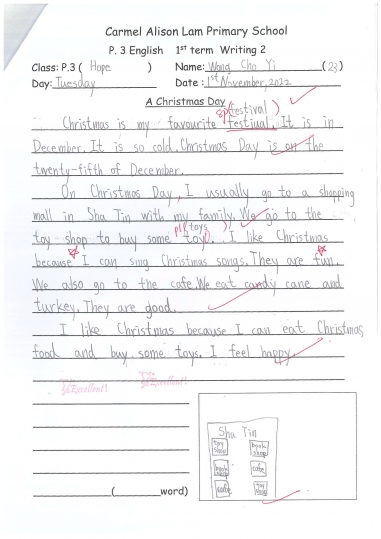 Carmel Alison Lam Primary School
P. 3 English 1st term Writing 2
Class: P.3 ( Hope ) Name: Wong Cho Yi (23)
Day: Tuesday Date : 1st November, 2022
A Christmas Day
sp (festival)
Christmas is my favourite festiual. It is in
December. It is so cold. Christmas Day is on the
twenty-fifth of December.
On Christmas Day, I usually go to a shopping
mall in Sha Tin with my family. We go to the
toys
toy shop to buy some toy. I like Christmas
because I can sing Christmas songs. They are fun.
We also go to the cafe. We eat candy cane and
turkey. They are good.
I like Christmas because I can eat Christmas
food and buy some toys. I feel happy.
Excellent! Excellent!
Sha Tin
toy shop book shop
book shop cafe
cafe toy shop
(word)